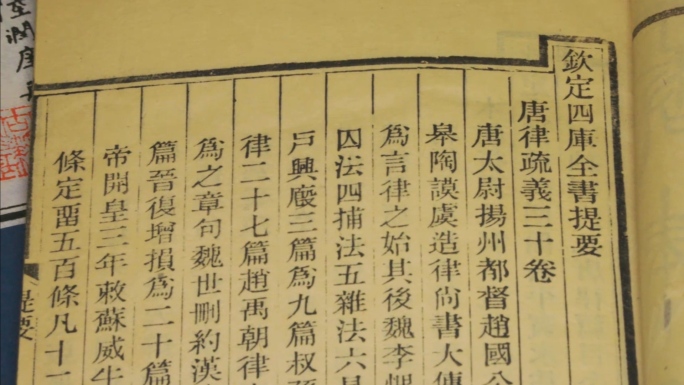 欽定四庫全書提要
唐律疏義三十卷
唐太尉揚州都督趙國公
皋陶謨虞造律尚書大傳
為言律之始其後魏李悝
囚法四捕法五雜法六具
戶興廄三篇為九篇叔孫
律二十七篇趙禹朝律
為之章句魏世刪約漢
篇晉復增損為二十篇
帝開皇三年敕蘇威牛
條定留五百條凡十二
提要